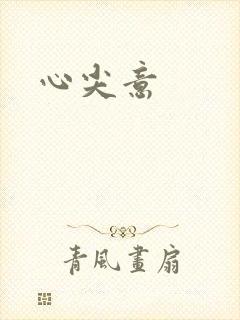 心尖意
青風畫扇